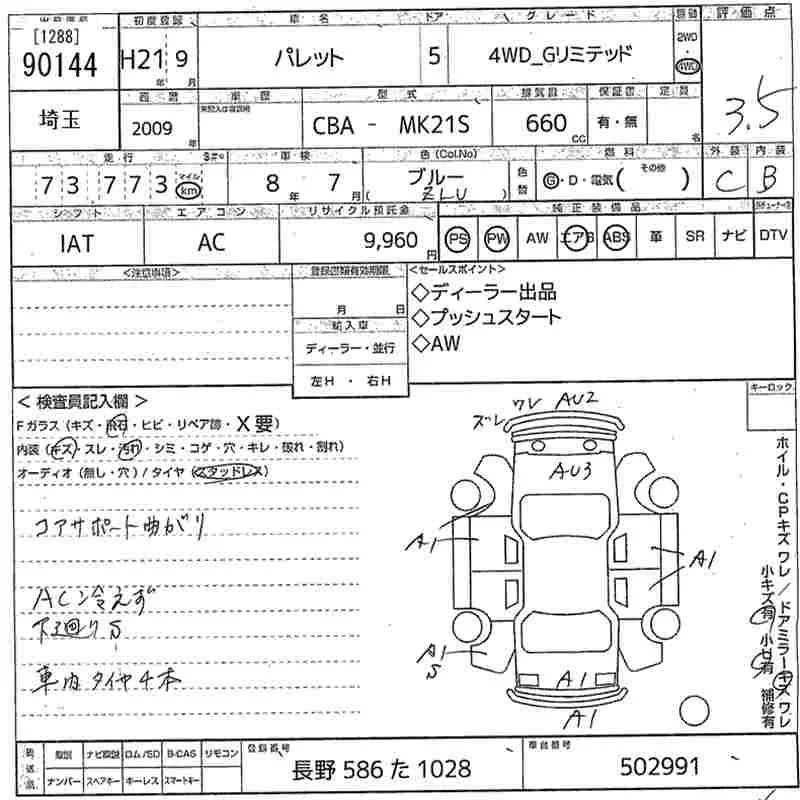 [1288]
90144
初度登録 車名 ドア グレード 評価点
H21 9 パレット 5 4WD_Gリミテッド 2WD 4WD
年 月
3.5
西暦 車歴 型式 排気量 保証書 定員
埼玉 2009 年 CBA - MK21S 660 CC 有・無 名
走行 車検 色(Col.No) 燃料 外装 内装
73 773 マイル km 8年 7月 ブルー 色替 G・D・電気( その他 ) C B
(ZLU)
シフト エアコン リサイクル預託金 純正装備品
IAT AC 9,960 円 PS PW AW エアB ABS 革 SR ナビ DTV
<注意事項> 登録書類有効期限 <セールスポイント>
月 日
◇ディーラー出品
◇プッシュスタート
◇AW
輸入車
ディーラー・並行
左H ・ 右H
<検査員記入欄>
Fガラス(キズ・飛石・ヒビ・リペア跡・X要)
内装(キズ・スレ・汚れ・シミ・コゲ・穴・キレ・破れ・割れ)
オーディオ(無し・穴)/タイヤ(スタッドレス)
コアサポート曲がり
AC冷えず
下廻りS
車内タイヤ4本
ズレ ワレ AU2
AU3
A1
A1
A1
S
A1
A1
キーロック
ホイル・CPキズ ワレ/ドアミラーキズ ワレ
小キズ有 小凹有 補修有
ナビ取説 ロム/SD B-CAS リモコン
ナンバー スペアキー キーレス スマートキー
登録番号 車台番号
長野 586 た 1028 502991